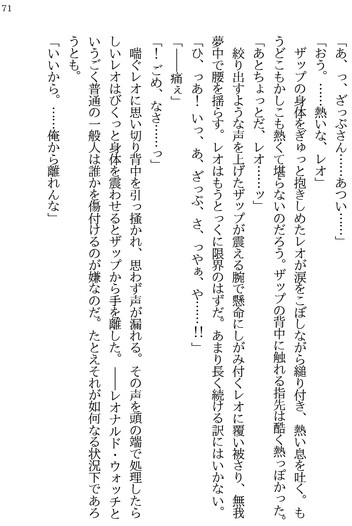 71
「あ、っ、ざっぷさん……あつい……」
「おう。……熱いな、レオ」
ザップの身体をぎゅっと抱きしめたレオが涙をこぼしながら縋り付き、熱い息を吐く。も
うどこもかしこも熱くて堪らないのだろう。ザップの背中に触れる指先は酷く熱っぽかった。
「あとちょっとだ、レオ……ッ」
絞り出すような声を上げたザップが震える腕で懸命にしがみ付くレオに覆い被さり、無我
夢中で腰を揺らす。レオはもうとっくに限界のはずだ。あまり長く続ける訳にはいかない。
「ひ、っあ！いっ、あ、ざっぷ、さ、っやぁ、や……!!」
「――痛ぇ」
「！ごめ、なさ……っ」
喘ぐレオに思い切り背中を引っ掻かれ、思わず声が漏れる。その声を頭の端で処理したら
しいレオはびくっと身体を震わせるとザップから手を離した。――レオナルド・ウォッチと
いうごく普通の一般人は誰かを傷付けるのが嫌なのだ。たとえそれが如何なる状況下であろ
うとも。
「いいから。……俺から離れんな」